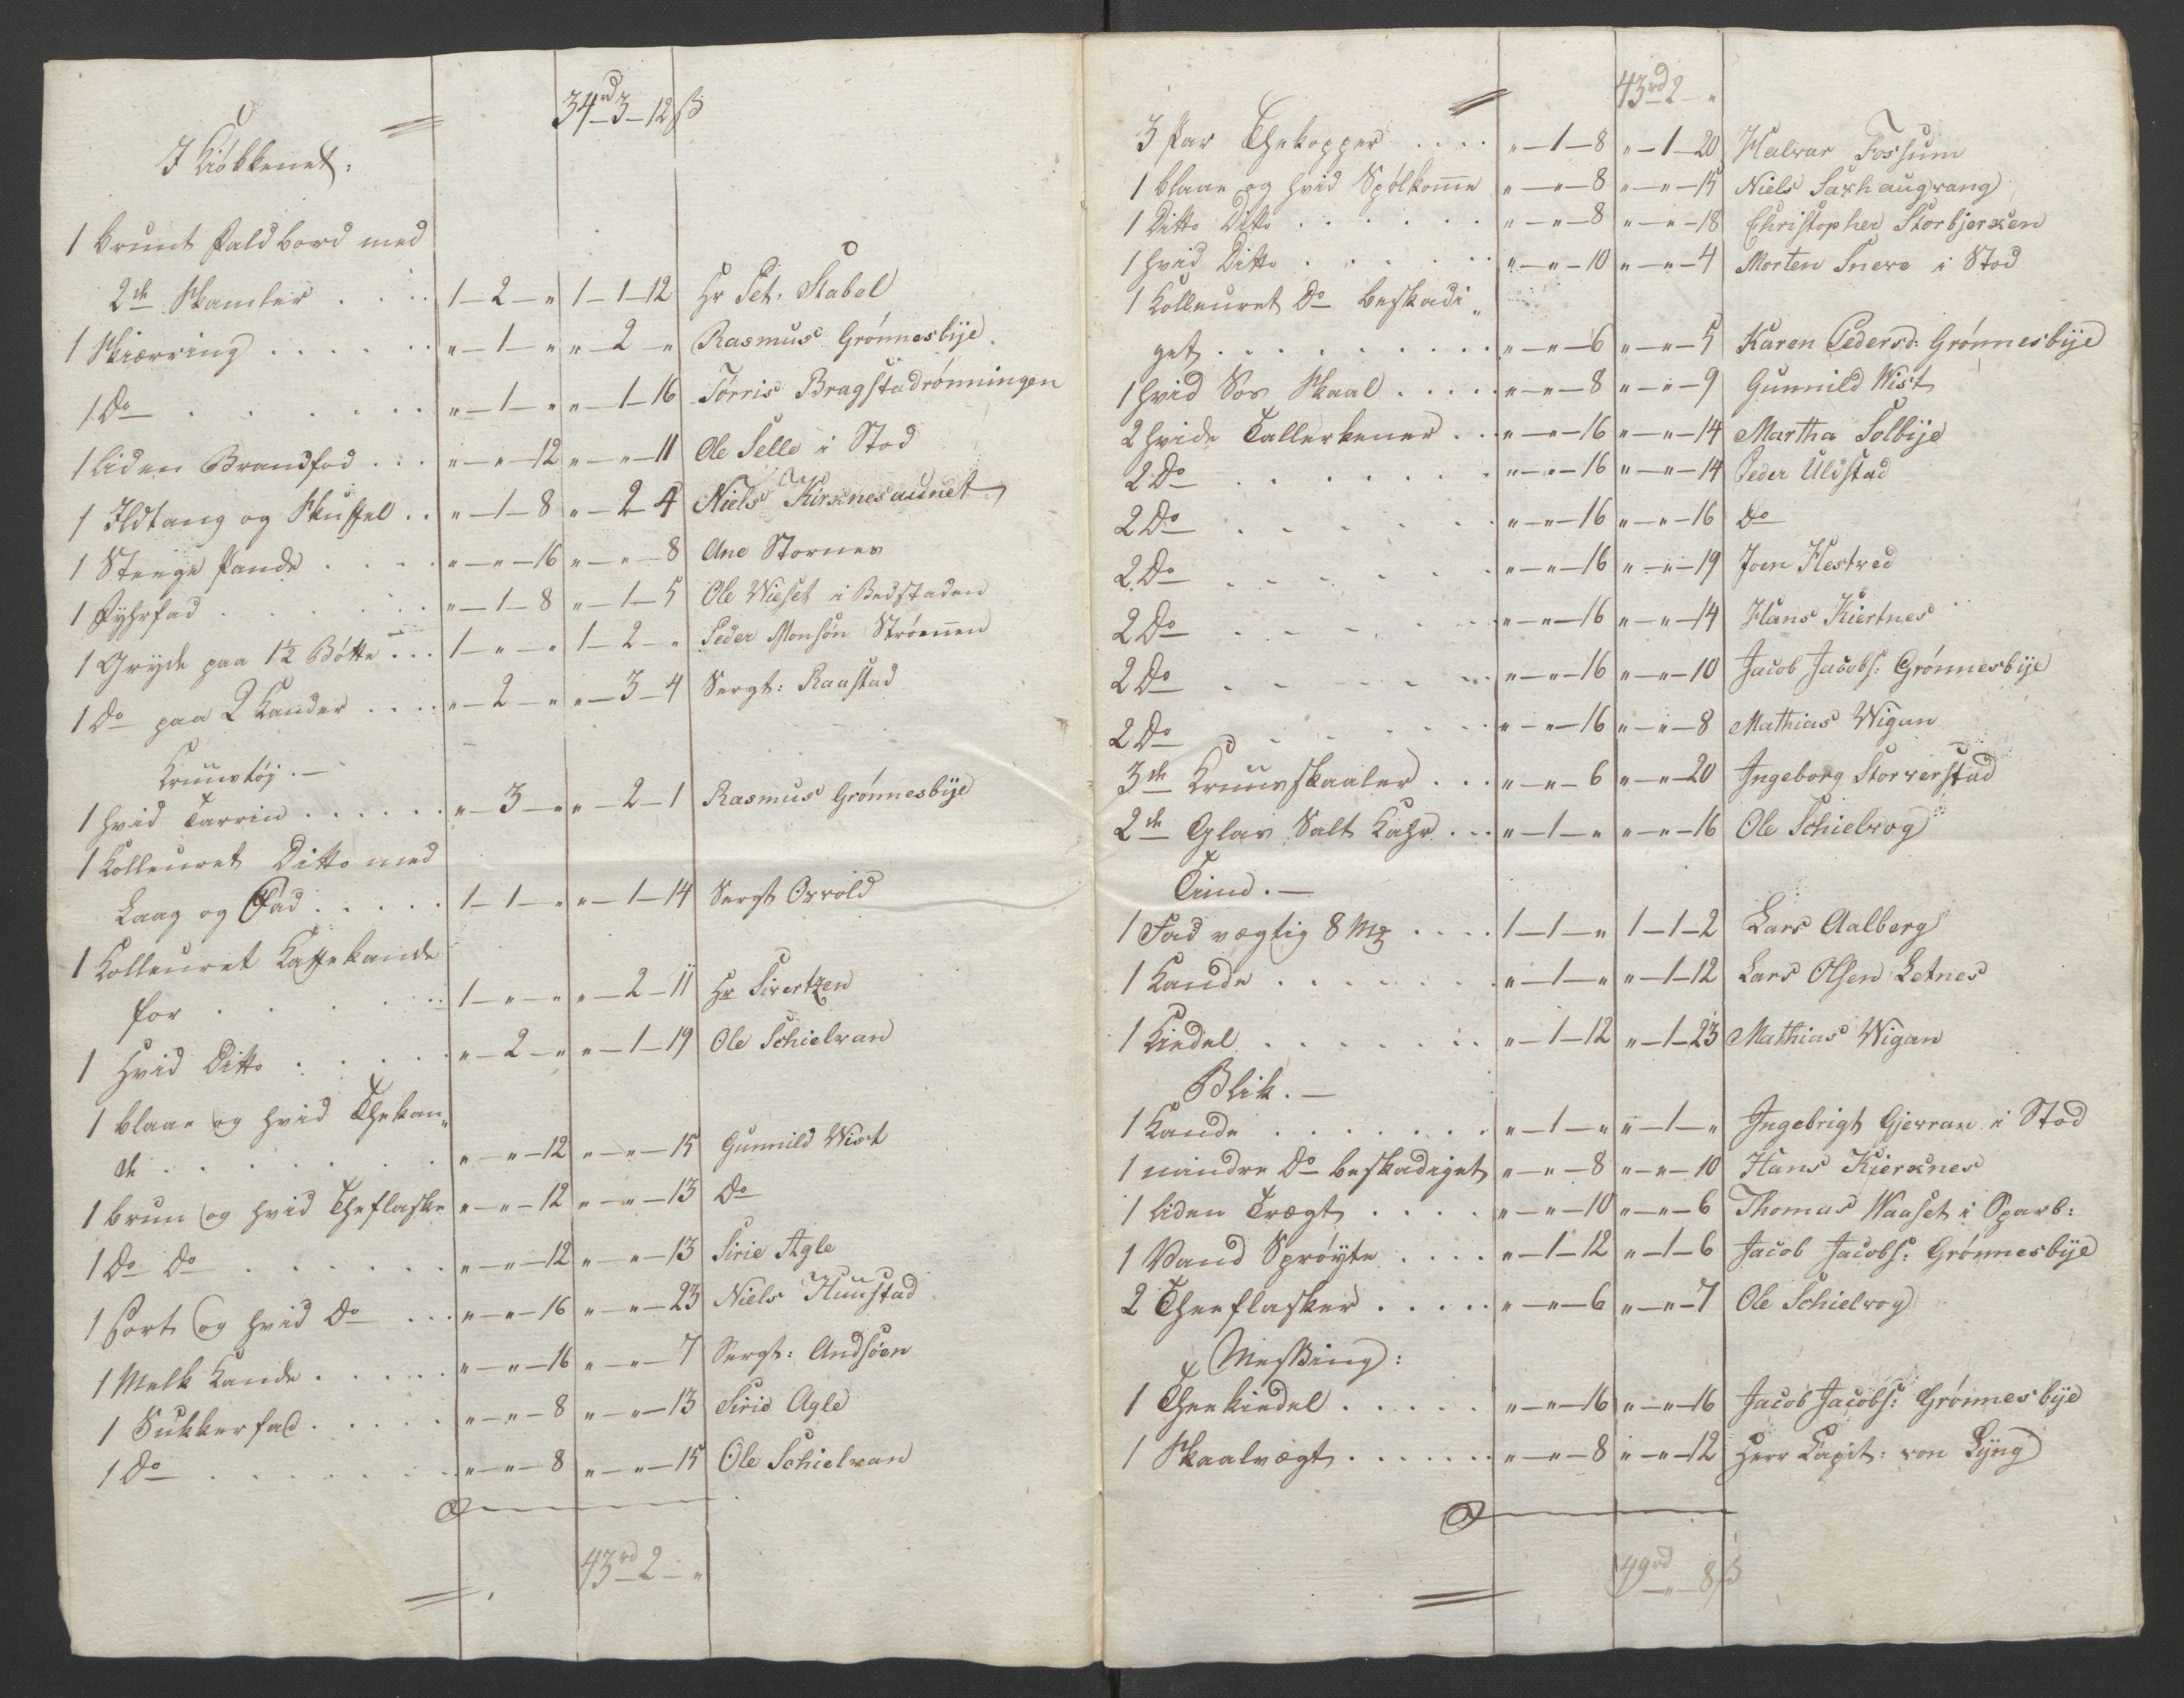 34rd 3 - 12 ß
I Kiökkenet:
1 brunt Fald bord med
2de Skamler . . . 1 - 2 - " 1 - 1 - 12 Hr Pet: Stabel
1 Skiærring . . . . . " - 1 - " " - 2 - " Rasmus Grönnesbÿe
1 Do . . . . . . " - 1 - " " - 1 - 16 Törris Bragstadrönningen
1 liden Brandfod . . . " - " - 12 " - " - 11 Ole Selle i Stod
1 Ildtang og Skuffel . . " - 1 - 8 " - 2 - 4 Niels Kirknesaunet
1 Steege Pande . . . . " - " - 16 " - " - 8 Ane Stornes
1 Fyhrfad . . . . . " - 1 - 8 " - 1 - 5 Ole Wieset i Bedstaden
1 Gryde paa 1½ Bötte . . . 1 - " - " 1 - 2 - " Peder Monsön Ströemen
1 Do paa 2 Kander . . . . " - 2 - " " - 3 - 4 Sergt: Raastad
Kruustöj. -
1 hvid Tarrin . . . . . . " - 3 - " " - 2 - 1 Rasmus Grönnesbÿe
1 Kolleuret Ditto med
Laag og Fad . . . . . 1 - 1 - " " - 1 - 14 Sergt Oxvold
1 Kolleuret Kaffekande
for . . . . . . 1 - " - " " - 2 - 11 Hr Sivertzen
1 Hvid Ditto . . . . . " - 2 - " " - 1 - 19 Ole Schielvan
1 blaae og hvid Thekan„
de . . . . . . . " - " - 12 " - " - 15 Gunnild Wist
1 brun og hvid Theflaske " - " - 12 " - " - 13 Do
1 Do Do . . . . . . " - " - 12 " - " - 13 Sirie Agle
1 sort og hvid Do . . . " - " - 16 " - " - 23 Niels Huustad
1 Melk Kande . . . . . " - " - 16 " - " - 7 Sergt: Andsöen
1 Sukkerfad . . . . . " - " - 8 " - " - 13 Sirie Agle
1 Do . . . . . . . " - " - 8 " - " - 15 Ole Schielvan
43rd 2 - "
43rd 2 - "
3 Par Thekopper . . . . " - 1 - 8 " - 1 - 20 Halvar Fossum
1 blaae og hvid Spölkome " - " - 8 " - " - 15 Niels Saxhaugvang
1 Ditto Ditto . . . . . . " - " - 8 " - " - 18 Christopher Storbjerken
1 hvid Ditto . . . . . . " - " - 10 " - " - 4 Morten Sneve i Stod
1 Kolleuret Do beskadi„
get . . . . . . . . . " - " - 6 " - " - 5 Karen Pedersd: Grönnesbÿe
1 hvid Sos Skaal . . . . . " - " - 8 " - " - 9 Gunnild Wist
2 hvide Tallerkener . . . " - " - 16 " - " - 14 Martha Solbÿe
2 Do . . . . . . " - " - 16 " - " - 14 Peder Uldstad
2 Do . . . . . . " - " - 16 " - " - 16 Do
2 Do . . . . . . " - " - 16 " - " - 19 Joen Flestved
2 Do . . . . . . " - " - 16 " - " - 14 Hans Kiertnes
2 Do . . . . . . " - " - 16 " - " - 10 Jacob Jacobs: Grönnesbÿe
2 Do . . . . . . " - " - 16 " - " - 8 Mathias Wigan
3de Kruusskaaler . . . " - " - 6 " - " - 20 Ingeborg Storverstad
2de Glas Salt Kahr . . . " - 1 - " " - " - 16 Ole Schielvog
Tind. -
1 Fad vægtig 8 Mk . . . . 1 - 1 - " 1 - 1 - 2 Lars Aalberg
1 Kande . . . . . . . " - 1 - " " - 1 - 12 Lars Olsen Letnes
1 Kiedel . . . . . . . " - 1 - 12 " - 1 - 23 Mathias Wigan
Blik. -
1 Kande . . . . . . . " - 1 - " " - 1 - " Ingebrigt Gjerran i Stod
1 mindre Do beskadiget " - " - 8 " - " - 10 Hans Kierknes
1 liden Trægt . . . . " - " - 10 " - " - 6 Thomas Waaset i Sparb:
1 Vand Spröyte . . . . " - 1 - 12 " - 1 - 6 Jacob Jacobs: Grönnesbÿe
2 Theeflasker . . . . . " - " - 6 " - " - 7 Ole Schielvog
Messing:
1 Theekiedel . . . . . " - " - 16 " - " - 16 Jacob Jacobs: Grönnesbÿe
1 Skaalvægt . . . . . . . " - " - 8 " - " - 12 Herr Kapit: von Lÿng
49rd - " - 8 ß